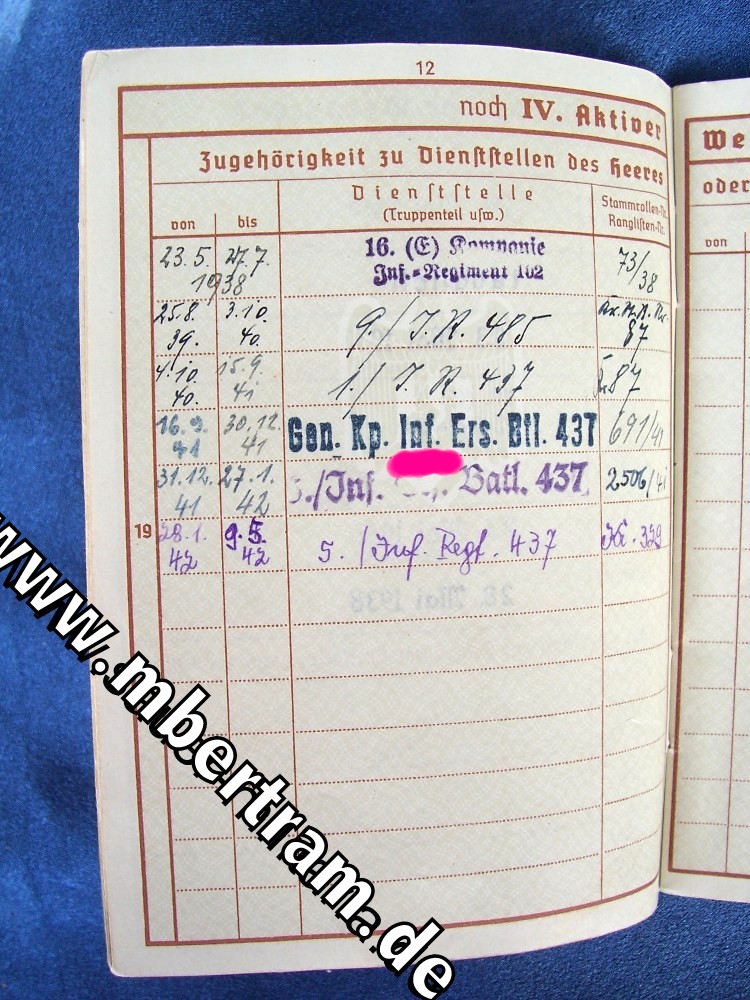 12
noch IV. Aktiver
Zugehörigkeit zu Dienststellen des Heeres
von bis Dienststelle (Truppenteil usw.) Stammrollen-Nr. Ranglisten-Nr.
23.5. 27.7. 1938 16. (E) Kompanie Inf.-Regiment 102 73/38
25.8. 39. 3.10. 40. 9./I.R. 485 87
4.10. 40. 15.9. 41 1./I.R. 437 87
16.9. 41 30.12. 41 Gen. Kp. Inf. Ers. Btl. 437 691/41
31.12. 41 27.1. 42 /Inf. Batl. 437 2506/41
19 28.1. 42 9.5. 42 5./Inf. Regt. 437 329
We
oder
von
www.mbertram.de